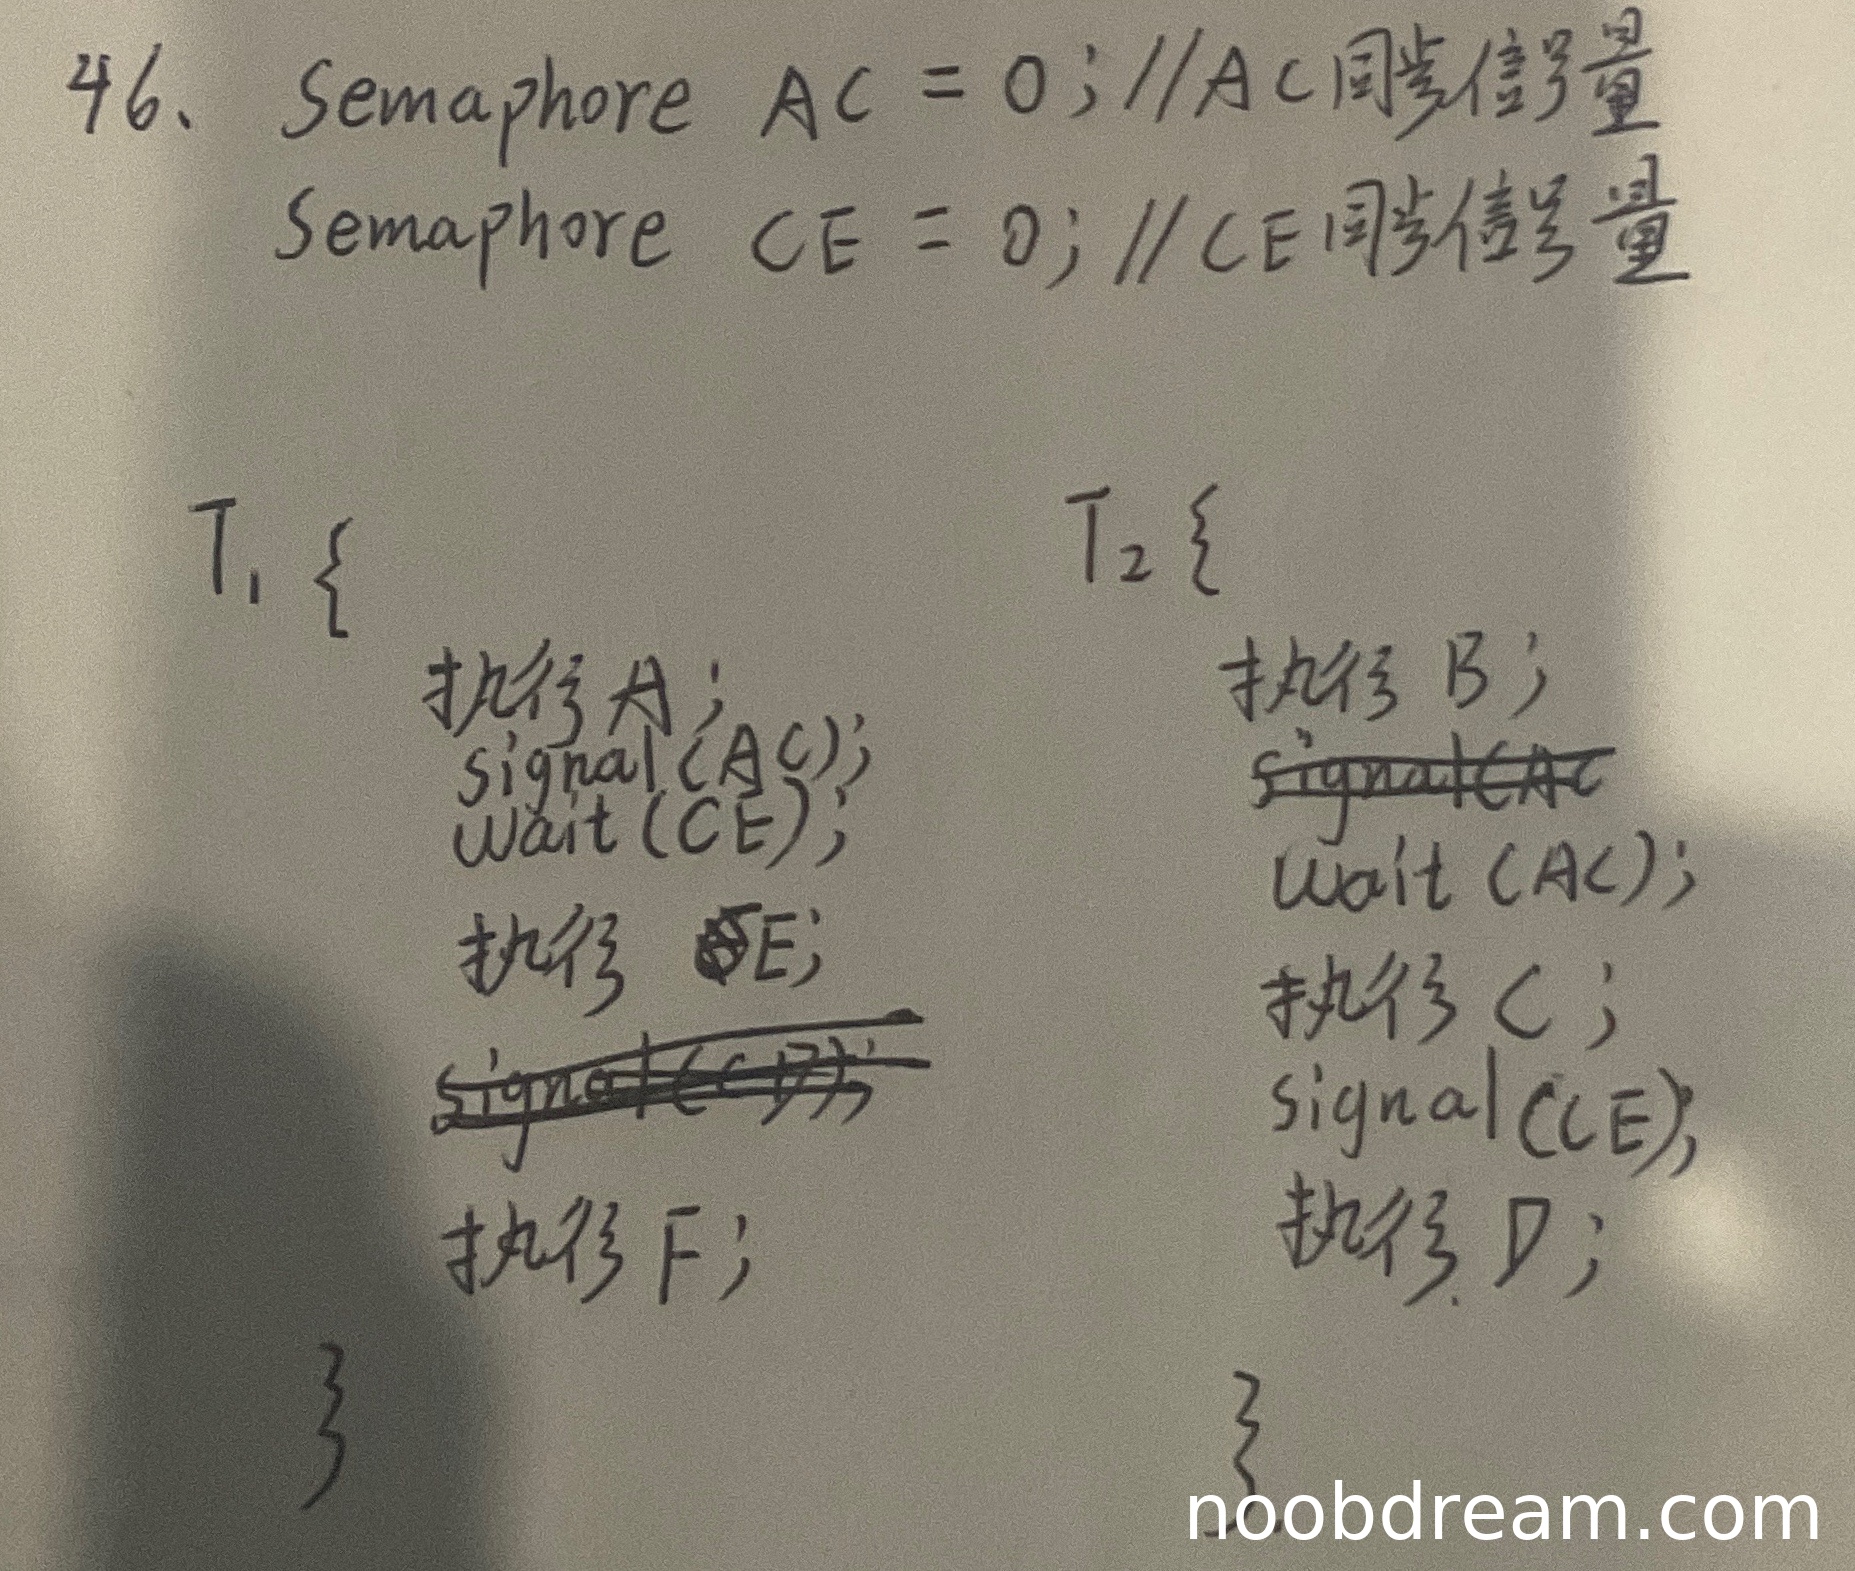 46、 Semaphore AC = 0; //AC同步信号量
Semaphore CE = 0; //CE同步信号量
T1 {
执行 A;
signal(AC);
wait(CE);
执行 E;
signal(CD);
执行 F;
}
T2 {
执行 B;
signal(AC
wait(AC);
执行 C;
signal(CE);
执行 D;
}
noobdream.com